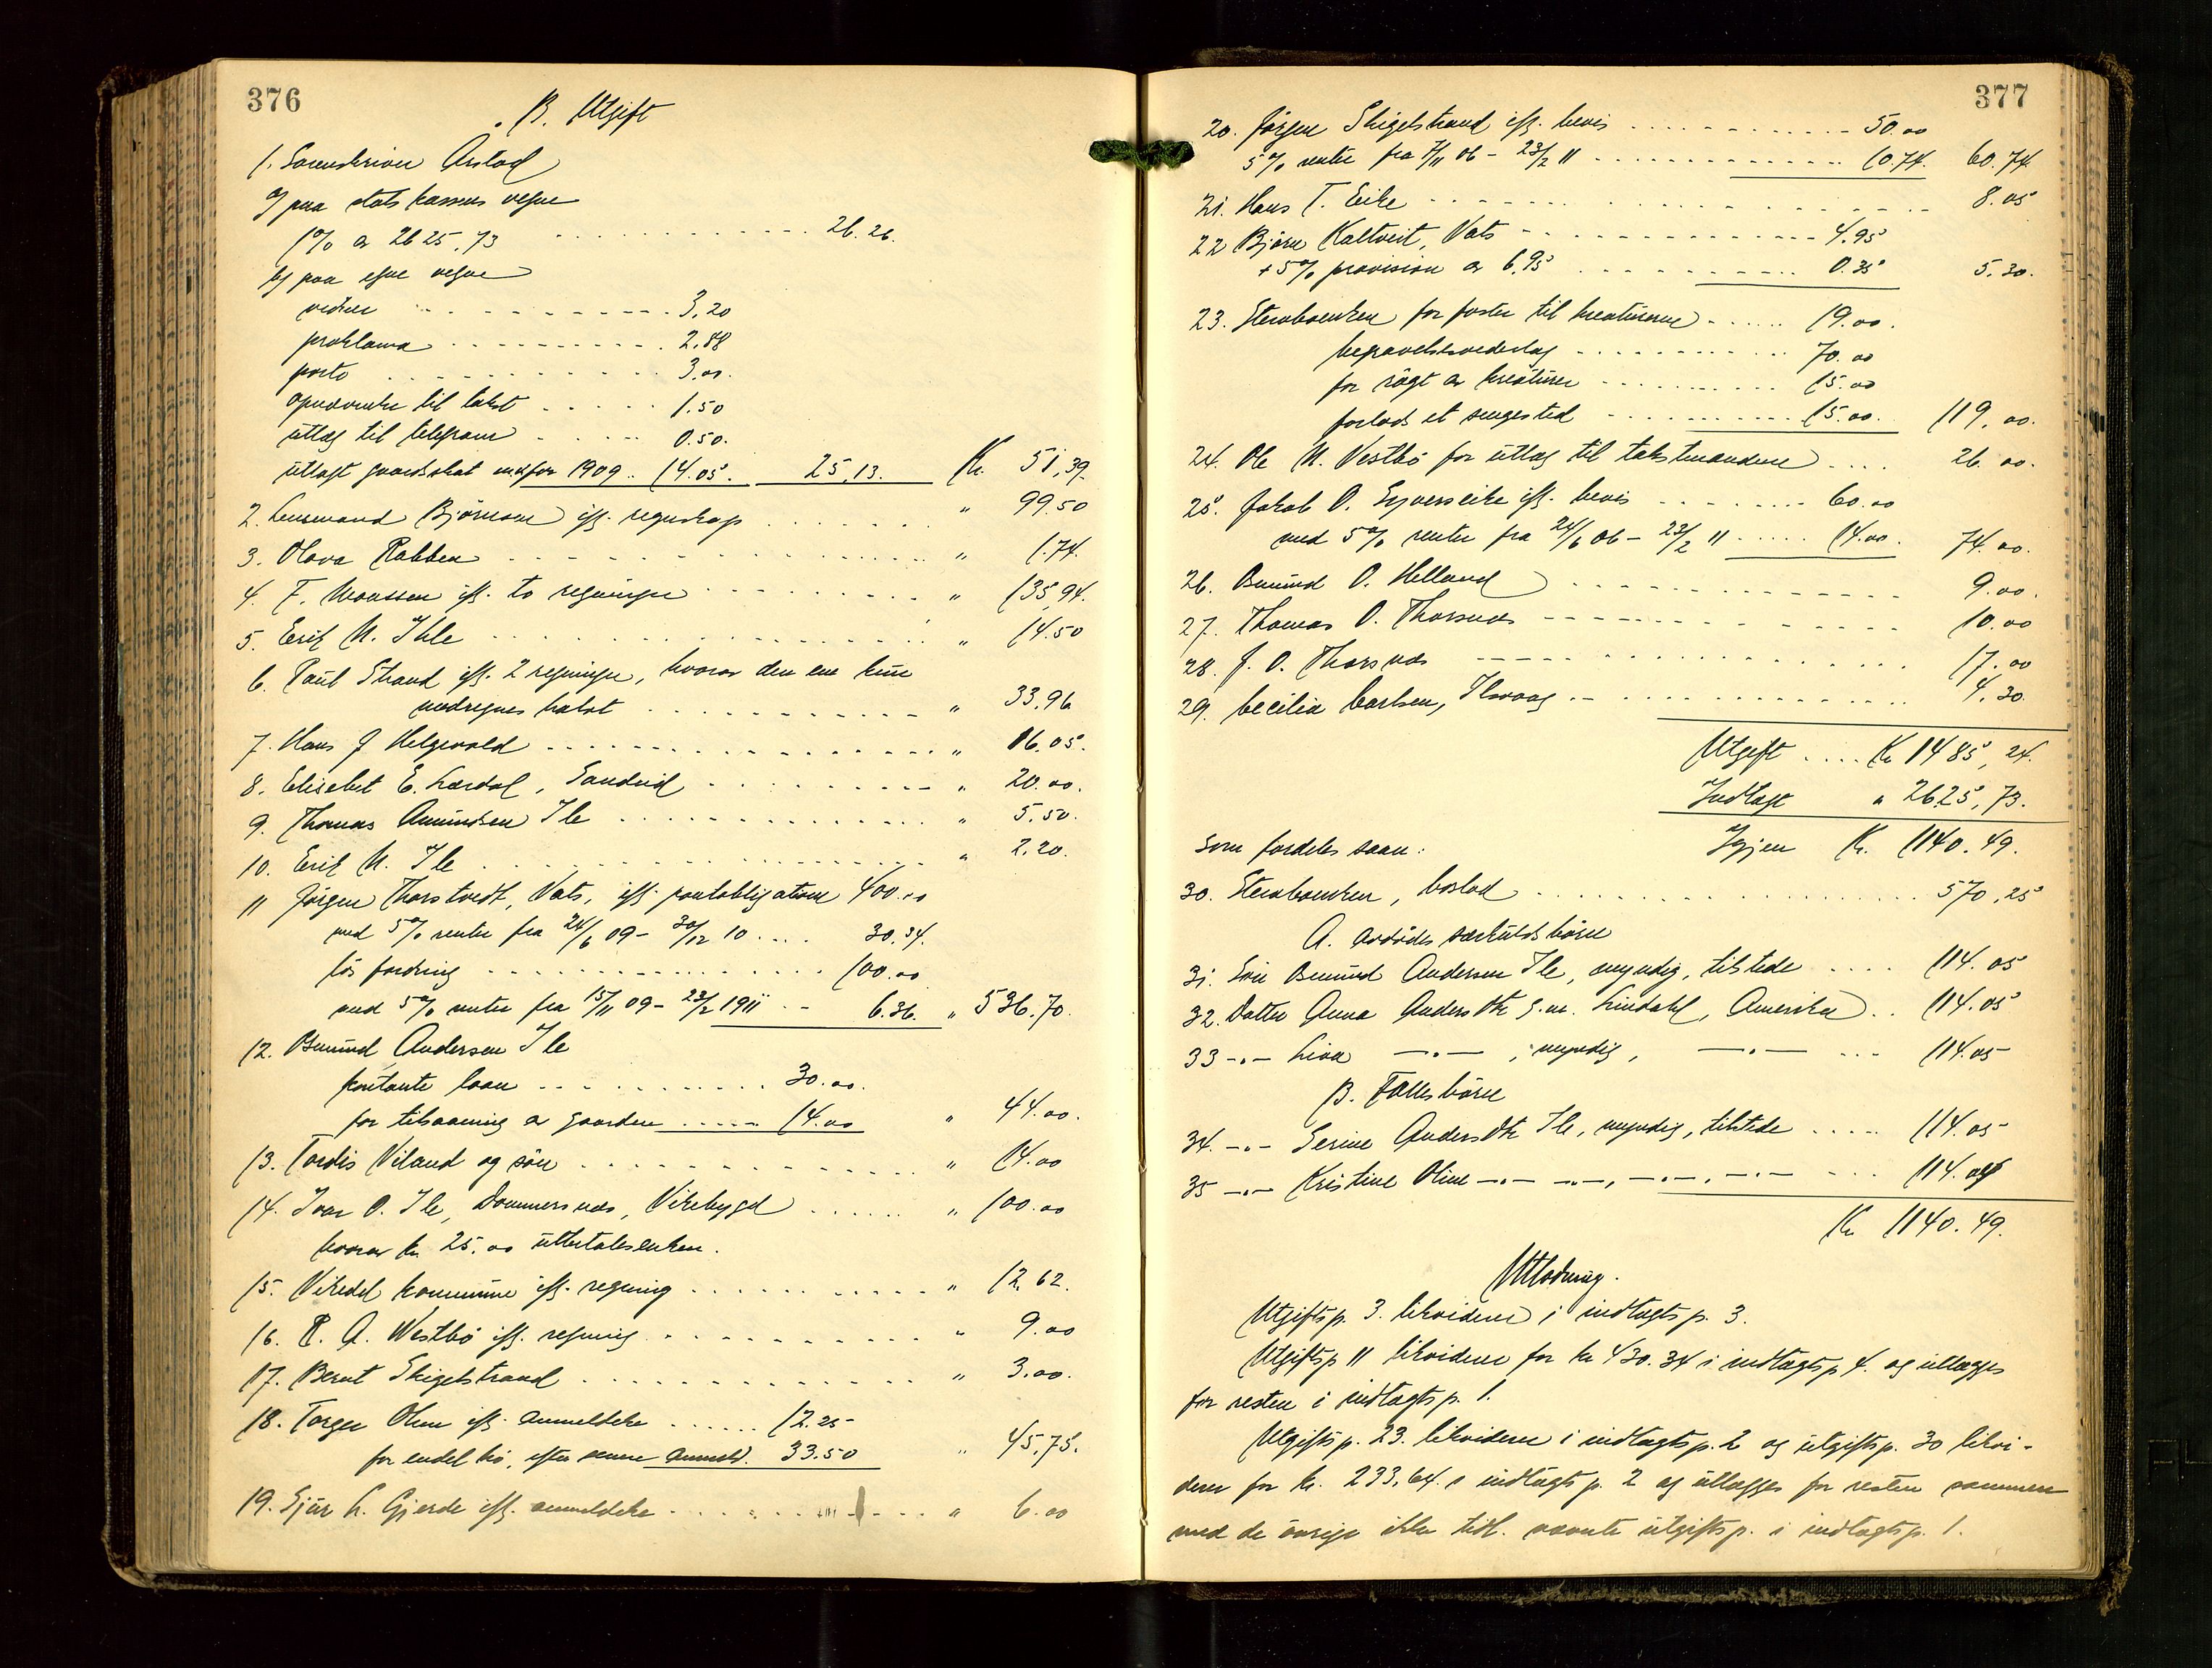 376
B. Utgift
1. Sorenskriver Aarstad
a) paa statskassens vegne
1% av 2625,73 26.26.
b) paa egne vegne
vidner 3,20
proklama 2.88
porto 3.00.
opnævnelse til takst 1.50
utlæg til telegram 0.50.
utlagt gaardskat m.v. for 1909 14.05. 25,13. Kr. 51,39
2. Lensmand Björnsen if. regnskap " 99.50
3. Olava Rabben " 1.74.
4. F. Monssen if. to regninger " 135,94.
5. Erik N. Ihle " 14.50
6. Paul Strand if. 2 regninger, hvorav den ene kun
medregnes halvt " 33.96
7. Hans J Helgevold " 16.05.
8. Elisabet E. Lærdal, Sandeid " 20.00.
9. Thomas Amundsen Ile " 5.50.
10. Erik N. Ile " 2.20.
11 Jørgen Thorstvedt, Vats, if. pantobligation 400.00
med 5% renter fra 24/6 09 - 30/12 10 30.34.
lös fordring 100.00
med 5% renter fra 15/11 09 - 23/2 1911 6.36. " 536.70.
12. Amund Andersen Ile
kontante laan 30.00.
for tilsaaning av gaarden 14.00 " 44.00.
13. Tordis Viland og sön " 14.00
14. Ivar O. Ile, Dommersnes, Vikebygd " 100.00
hvorav kr. 25.00 utbetales enken.
15. Vikedal kommune if. regning " 12.62.
16. R. A. Westbö if. regning " 9.00
17. Bernt Skigelstrand " 3.00.
18. Torger Olsen if. anmeldelse 12.25
for endel hö, efter senere anmeld. 33.50 " 45.75.
19. Sjur L. Gjerde if. anmeldelse " 6.00
377
20. Jörgen Skigelstrand if. bevis 50.00
5% renter fra 7/11 06 - 23/2 11 10.74. 60.74
21. Hans T. Eike 8.05
22 Björn Kaltveit, Vats 4.95
+ 5% provision av 6.95 0.35 5.30.
23. Stervboenken for foster til kreaturene 19.00.
begravelsesvederlag 70.00
for rögt av kreaturer 15.00
forlods et sengested 15.00. 119.00.
24. Ole N. Vestbö for utlæg til takstmændene 26.00.
25. Jakob O. Syverseike if. bevis 60.00
med 5% renter fra 24/6 06 - 23/2 11 14.00. 74.00.
26. Amund O. Helland 9.00.
27. Thomas O. Thorsnes 10.00
28. J. O. Thorsnes 17.00
29. Cecilia Carlsen, Ilsvaag 4.30.
Utgift Kr 1485,24.
Indtægt " 2625,73.
Igjen Kr. 1140.49.
Som fordeles saan:
30. Stervboenken, boslod 570,25
A. avdödes særkuldsbörn
31. Sön Amund Andersen Ile, myndig, tilstede 114.05
32. Datter Anna Andersdtr g.m. Lindahl, Amerika 114.05
33 -"- Lina -"-, myndig, -"- 114.05
B. Fællesbörn
34. -"- Serine Andersdtr Ile, myndig, tilstede 114.05
35 -"- Kristine Oline -"- -"-, -"-, -"- 114.04
Kr 1140.49.
Utlodning.
Utgiftsp. 3. likvideres i indtægtsp. 3.
Utgiftsp 11 likvideres for kr 430.34 i indtægtsp 4. og utlægges
for resten i indtægtsp. 1.
Utgiftsp. 23. likvideres i indtægtsp. 2 og utgiftsp. 30 likvi-
deres for kr. 233.64. i indtægtsp. 2 og utlægges for resten sammen
med de övrige ikke tidl. nævnte utgiftsp. i indtægtsp. 1.